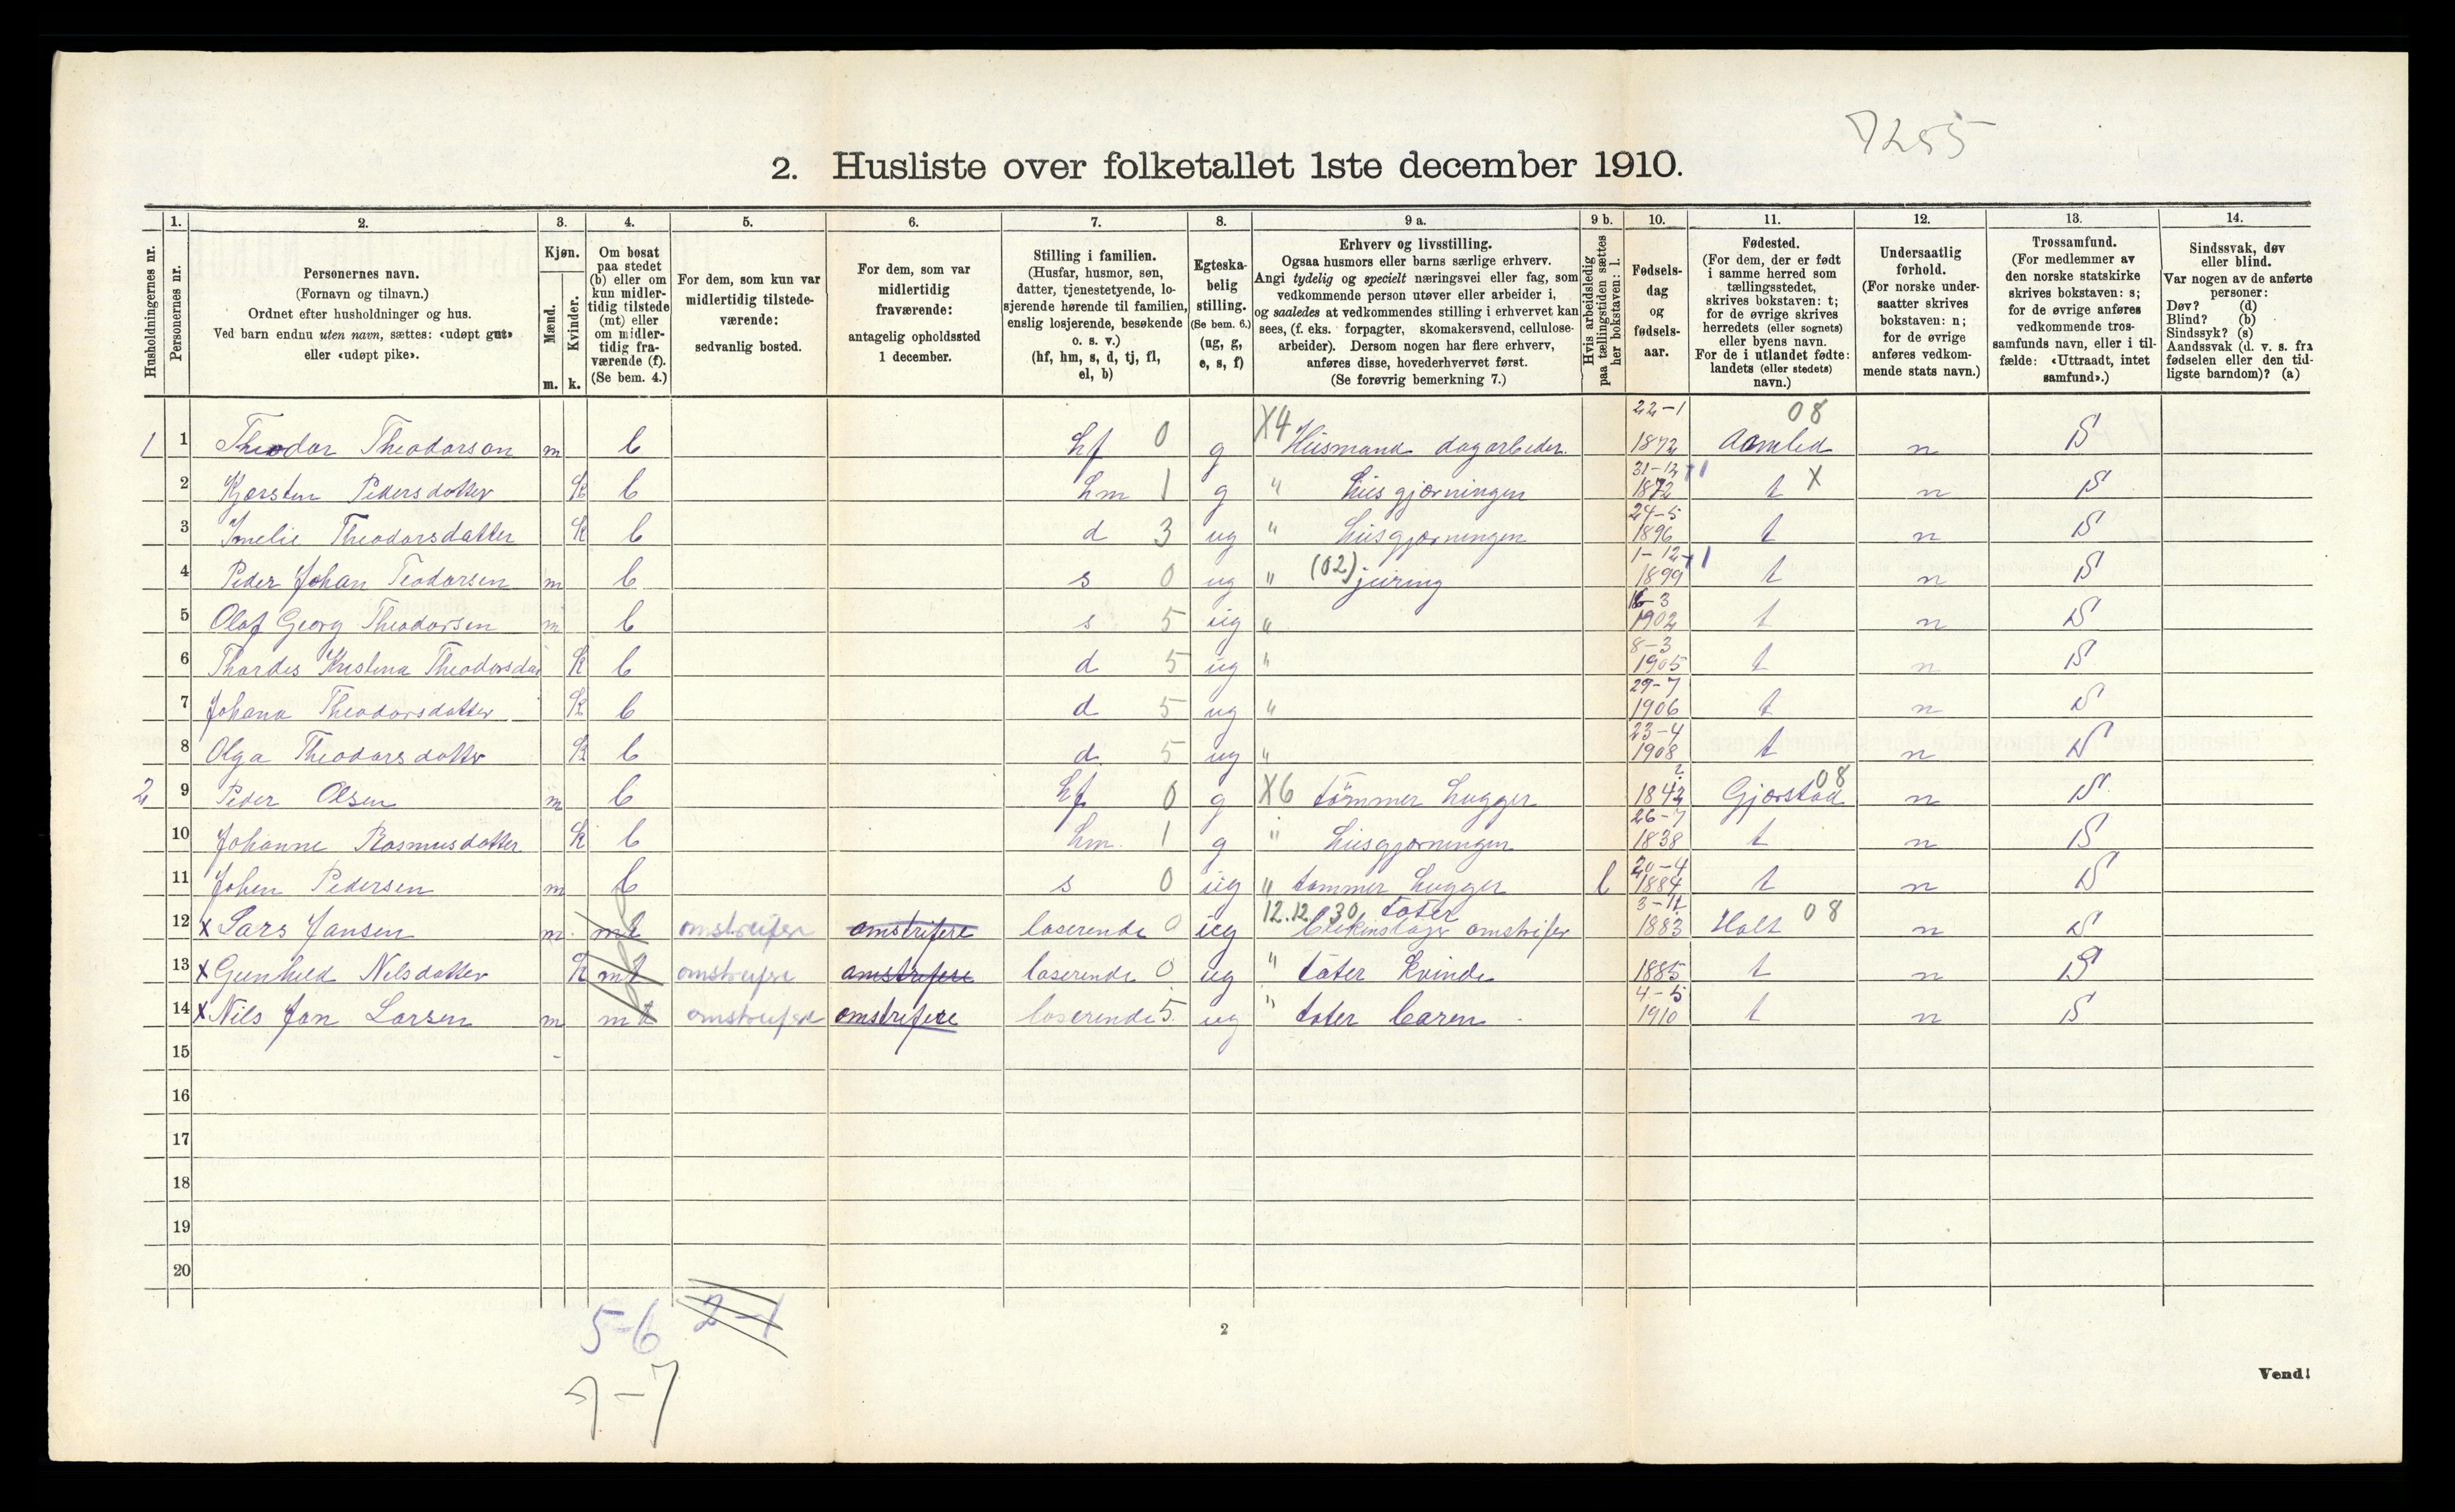 7255
2. Husliste over folketallet 1ste december 1910.
Husholdningernes nr.
1.
Personernes nr.
2.
Personernes navn.
(Fornavn og tilnavn.)
Ordnet efter husholdninger og hus.
Ved barn endnu uten navn, sættes: «udøpt gut»
eller «udøpt pike».
3.
Kjøn.
Mænd.
Kvinder.
m. k.
4.
Om bosat
paa stedet
(b) eller om
kun midler-
tidig tilstede
(mt) eller
om midler-
tidig fra-
værende (f).
(Se bem. 4.)
5.
For dem, som kun var
midlertidig tilstede-
værende:
sedvanlig bosted.
6.
For dem, som var
midlertidig
fraværende:
antagelig opholdssted
1 december.
7.
Stilling i familien.
(Husfar, husmor, søn,
datter, tjenestetyende, lo-
sjerende hørende til familien,
enslig losjerende, besøkende
o. s. v.)
(hf, hm, s, d, tj, fl,
el, b)
8.
Egteska-
belig
stilling.
(Se bem. 6.)
(ug, g,
e, s, f)
9 a.
Erhverv og livsstilling.
Ogsaa husmors eller barns særlige erhverv.
Angi tydelig og specielt næringsvei eller fag, som
vedkommende person utøver eller arbeider i,
og saaledes at vedkommendes stilling i erhvervet kan
sees, (f. eks. forpagter, skomakersvend, cellulose-
arbeider). Dersom nogen har flere erhverv,
anføres disse, hovederhvervet først.
(Se forøvrig bemerkning 7.)
9 b.
Hvis arbeidsledig
paa tællingstiden sættes
her bokstaven: l.
10.
Fødsels-
dag
og
fødsels-
aar.
11.
Fødested.
(For dem, der er født
i samme herred som
tællingsstedet,
skrives bokstaven: t;
for de øvrige skrives
herredets (eller sognets)
eller byens navn.
For de i utlandet fødte:
landets (eller stedets)
navn.)
12.
Undersaatlig
forhold.
(For norske under-
saatter skrives
bokstaven: n;
for de øvrige
anføres vedkom-
mende stats navn.)
13.
Trossamfund.
(For medlemmer av
den norske statskirke
skrives bokstaven: s;
for de øvrige anføres
vedkommende tros-
samfunds navn, eller i til-
fælde: «Uttraadt, intet
samfund».)
14.
Sindssvak, døv
eller blind.
Var nogen av de anførte
personer:
Døv? (d)
Blind? (b)
Sindssyk? (s)
Aandssvak (d. v. s. fra
fødselen eller den tid-
ligste barndom)? (a)
1 1 Theodor Theodorson m b hf 0 g X4 Husmand dagarbeder. 22-1 1872 Aamled 08 n S
2 Kjersten Pedersdatter k b hm 1 g " husgjørningen 31-12 1872 t X n S
3 Imelie Theodorsdatter k b d 3 ug " husgjørningen 24-5 1896 t n S
4 Peder Johan Teodorsen m b s 0 ug " (02) juring 1-12 1899 t n S
5 Olaf Georg Theodorsen m b s 5 ug " 16-3 1902 t n S
6 Thordis Kristena Theodorsdat k b d 5 ug " 8-3 1905 t n S
7 Johana Theodorsdatter k b d 5 ug " 29-7 1906 t n S
8 Olga Theodorsdatter k b d 5 ug " 23-4 1908 t n S
2 9 Peder Olsen m b hf 0 g X6 tömmer hugger ? 1842 Gjerstad 08 n S
10 Johanne Rasmusdatter k b hm. 1 g " husgjorningen 26-7 1838 t n S
11 Johen Pedersen m b s 0 ug " tømmer hugger l 20-4 1884 t n S
12 x Lars Jansen m mt omstreifer omstrifere loserende 0 ug 12.12.30 tater blekenslager omstrifer 3-11 1883 Holt 08 n S
13 x Gunhild Nilsdatter k mt omstreifere omstrifere loserende 0 ug " tater kvinde 1885 t n S
14 x Nils Jan Larsen m mt omstreifere omstrifere loserende 5 ug " tater baren 4-5 1910 t n S
15
16
17
18
19
20
5-6 2-1
7-7
2
Vend!